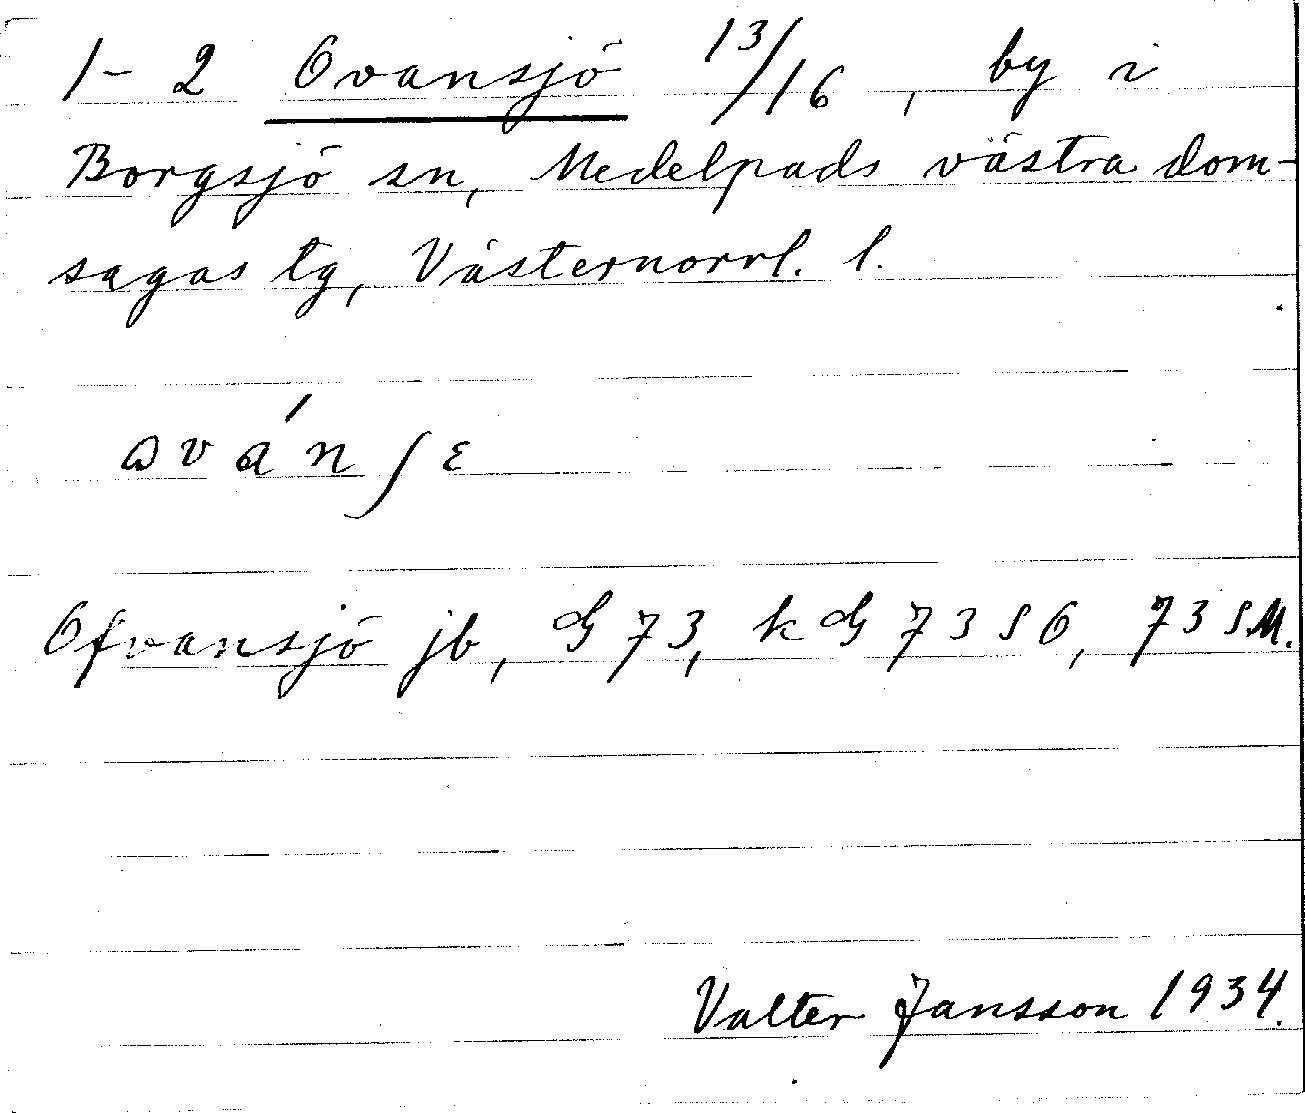 1-2 Ovansjö 13/16, by i
Borgsjö sn, Medelpads västra dom-
sagas tg, Västernorrl. l.
ɷván∫ɛ
Ofvansjö jb, G 73, k G 73 S 6, 73 S M.
Valter Jansson 1934.